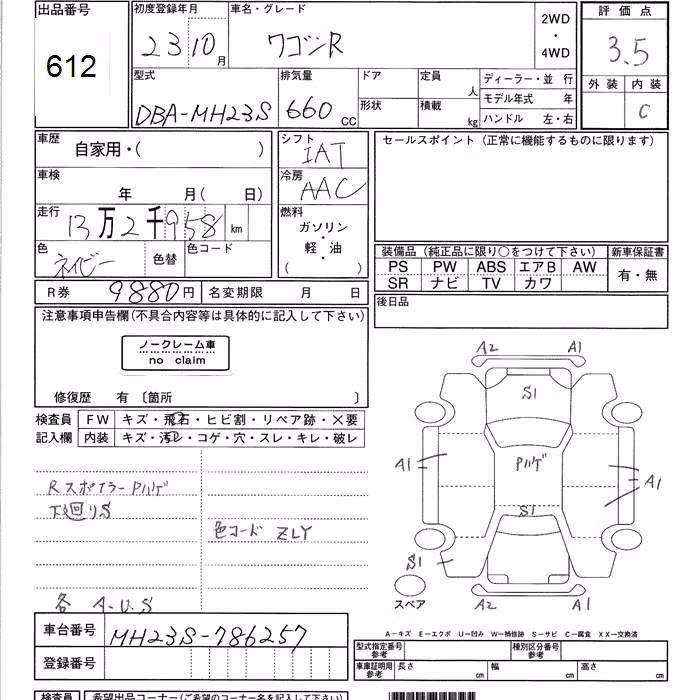 出品番号
612
初度登録年月
23 10 月
車名・グレード
ワゴンR
2WD
・
4WD
評価点
3.5
外装 内装
C
型式
DBA-MH23S
排気量
660 CC
ドア
形状
定員 人
積載 kg
ディーラー・並 行
モデル年式 年
ハンドル 左・右
車歴
自家用・( )
車検
年 月( 日)
走行
13万2千958 km
色
ネイビー
色替
色コード
シフト
IAT
冷房
AAC
燃料
ガソリン
・
軽・油
( )
セールスポイント(正常に機能するものに限ります)
装備品(純正品に限り○をつけて下さい)
PS PW ABS エアB AW
SR ナビ TV カワ
新車保証書
有・無
後日品
R券 9880円
名変期限 月 日
注意事項申告欄(不具合内容等は具体的に記入して下さい)
ノークレーム車
no claim
修復歴 有〔箇所 〕
検査員
記入欄
FW キズ・飛石・ヒビ割・リペア跡・×要
内装 キズ・汚レ・コゲ・穴・スレ・キレ・破レ
Rスポイラー Pハゲ
下廻りS
色コード ZLY
各 A.U.S
A2 A1
S1
A1 Pハゲ A1
S1
S1
A2 A1
スペア
A－キズ E－エクボ U－凹み W－補修跡 S－サビ C－腐食 XX－交換済
車台番号 MH23S-786257
登録番号
型式指定番号
参考
種別区分番号
参考
車庫証明用
参考
長さ cm 幅 cm 高さ cm
検査員
希望出品コーナー(ご希望のコーナー名を記入して下さい)